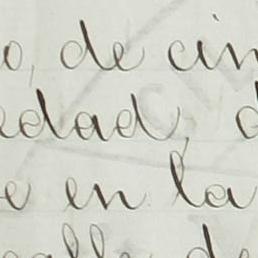 o, de cin
edad, d
e en la
alle de